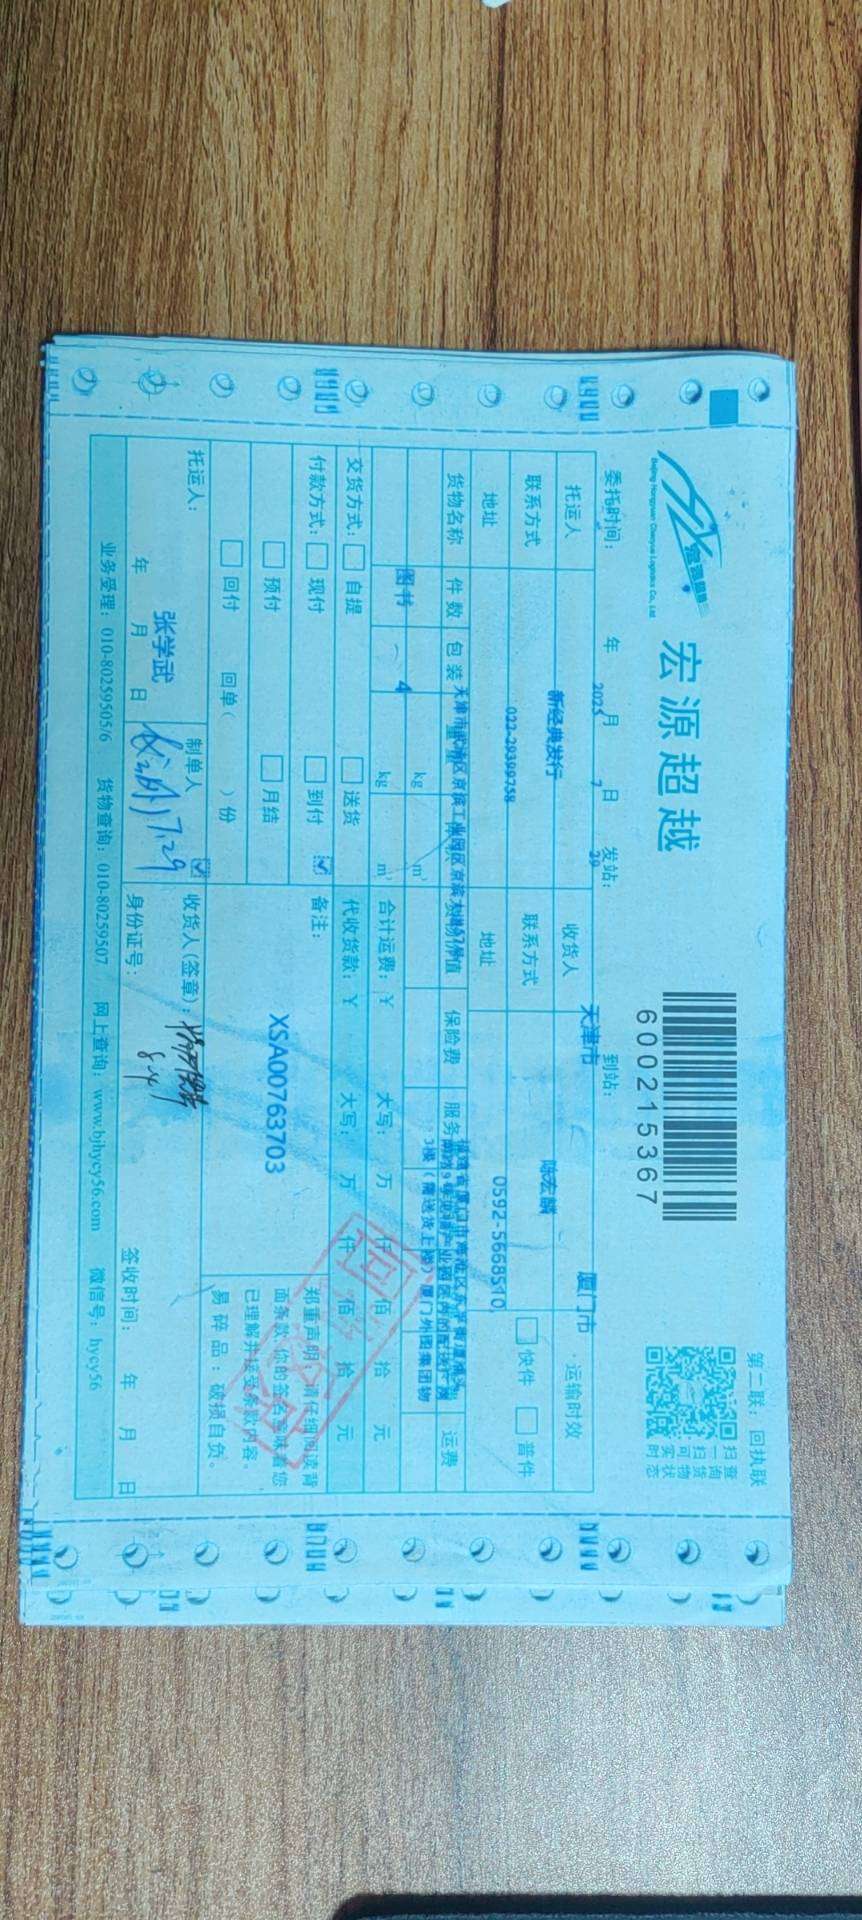 宏源超越
Beijing Hongyuan Chaoyue Logistics Co., Ltd
600215367
第二联：回执联
扫一扫可实时
查询货物状态
委托时间： 2025 年 7 月 29 日 发站： 天津市 到站： 厦门市
托运人 新经典发行 收货人 陈宏麟 运输时效
联系方式 022-29399758 联系方式 0592-5668510 快件 普件
地址 天津市武清区京滨工业园区京滨大道 地址
3楼（需送货上楼）厦门外图集团物
货物名称 件数 包装 重量 货物价值 保险费 服务 运费
图书 4 kg m³
kg m³ 合计运费：¥ 大写： 万 仟 佰 拾 元
交货方式： 自提 送货 代收货款：¥ 大写： 万 仟 佰 拾 元
付款方式： 现付 到付 备注：
预付 月结
回付 回单（ ）份
XSA00763703
郑重声明：请仔细阅读背
面条款，您的签字意味着您
已理解并接受条款内容。
易碎品：破损自负。
托运人： 张学武 制单人 收货人(签章)：
7.29
年 月 日 身份证号： 签收时间： 年 月 日
业务受理：010-80259505/6 货物查询：010-80259507 网上查询：www.bjhycy56.com 微信号：hycy56